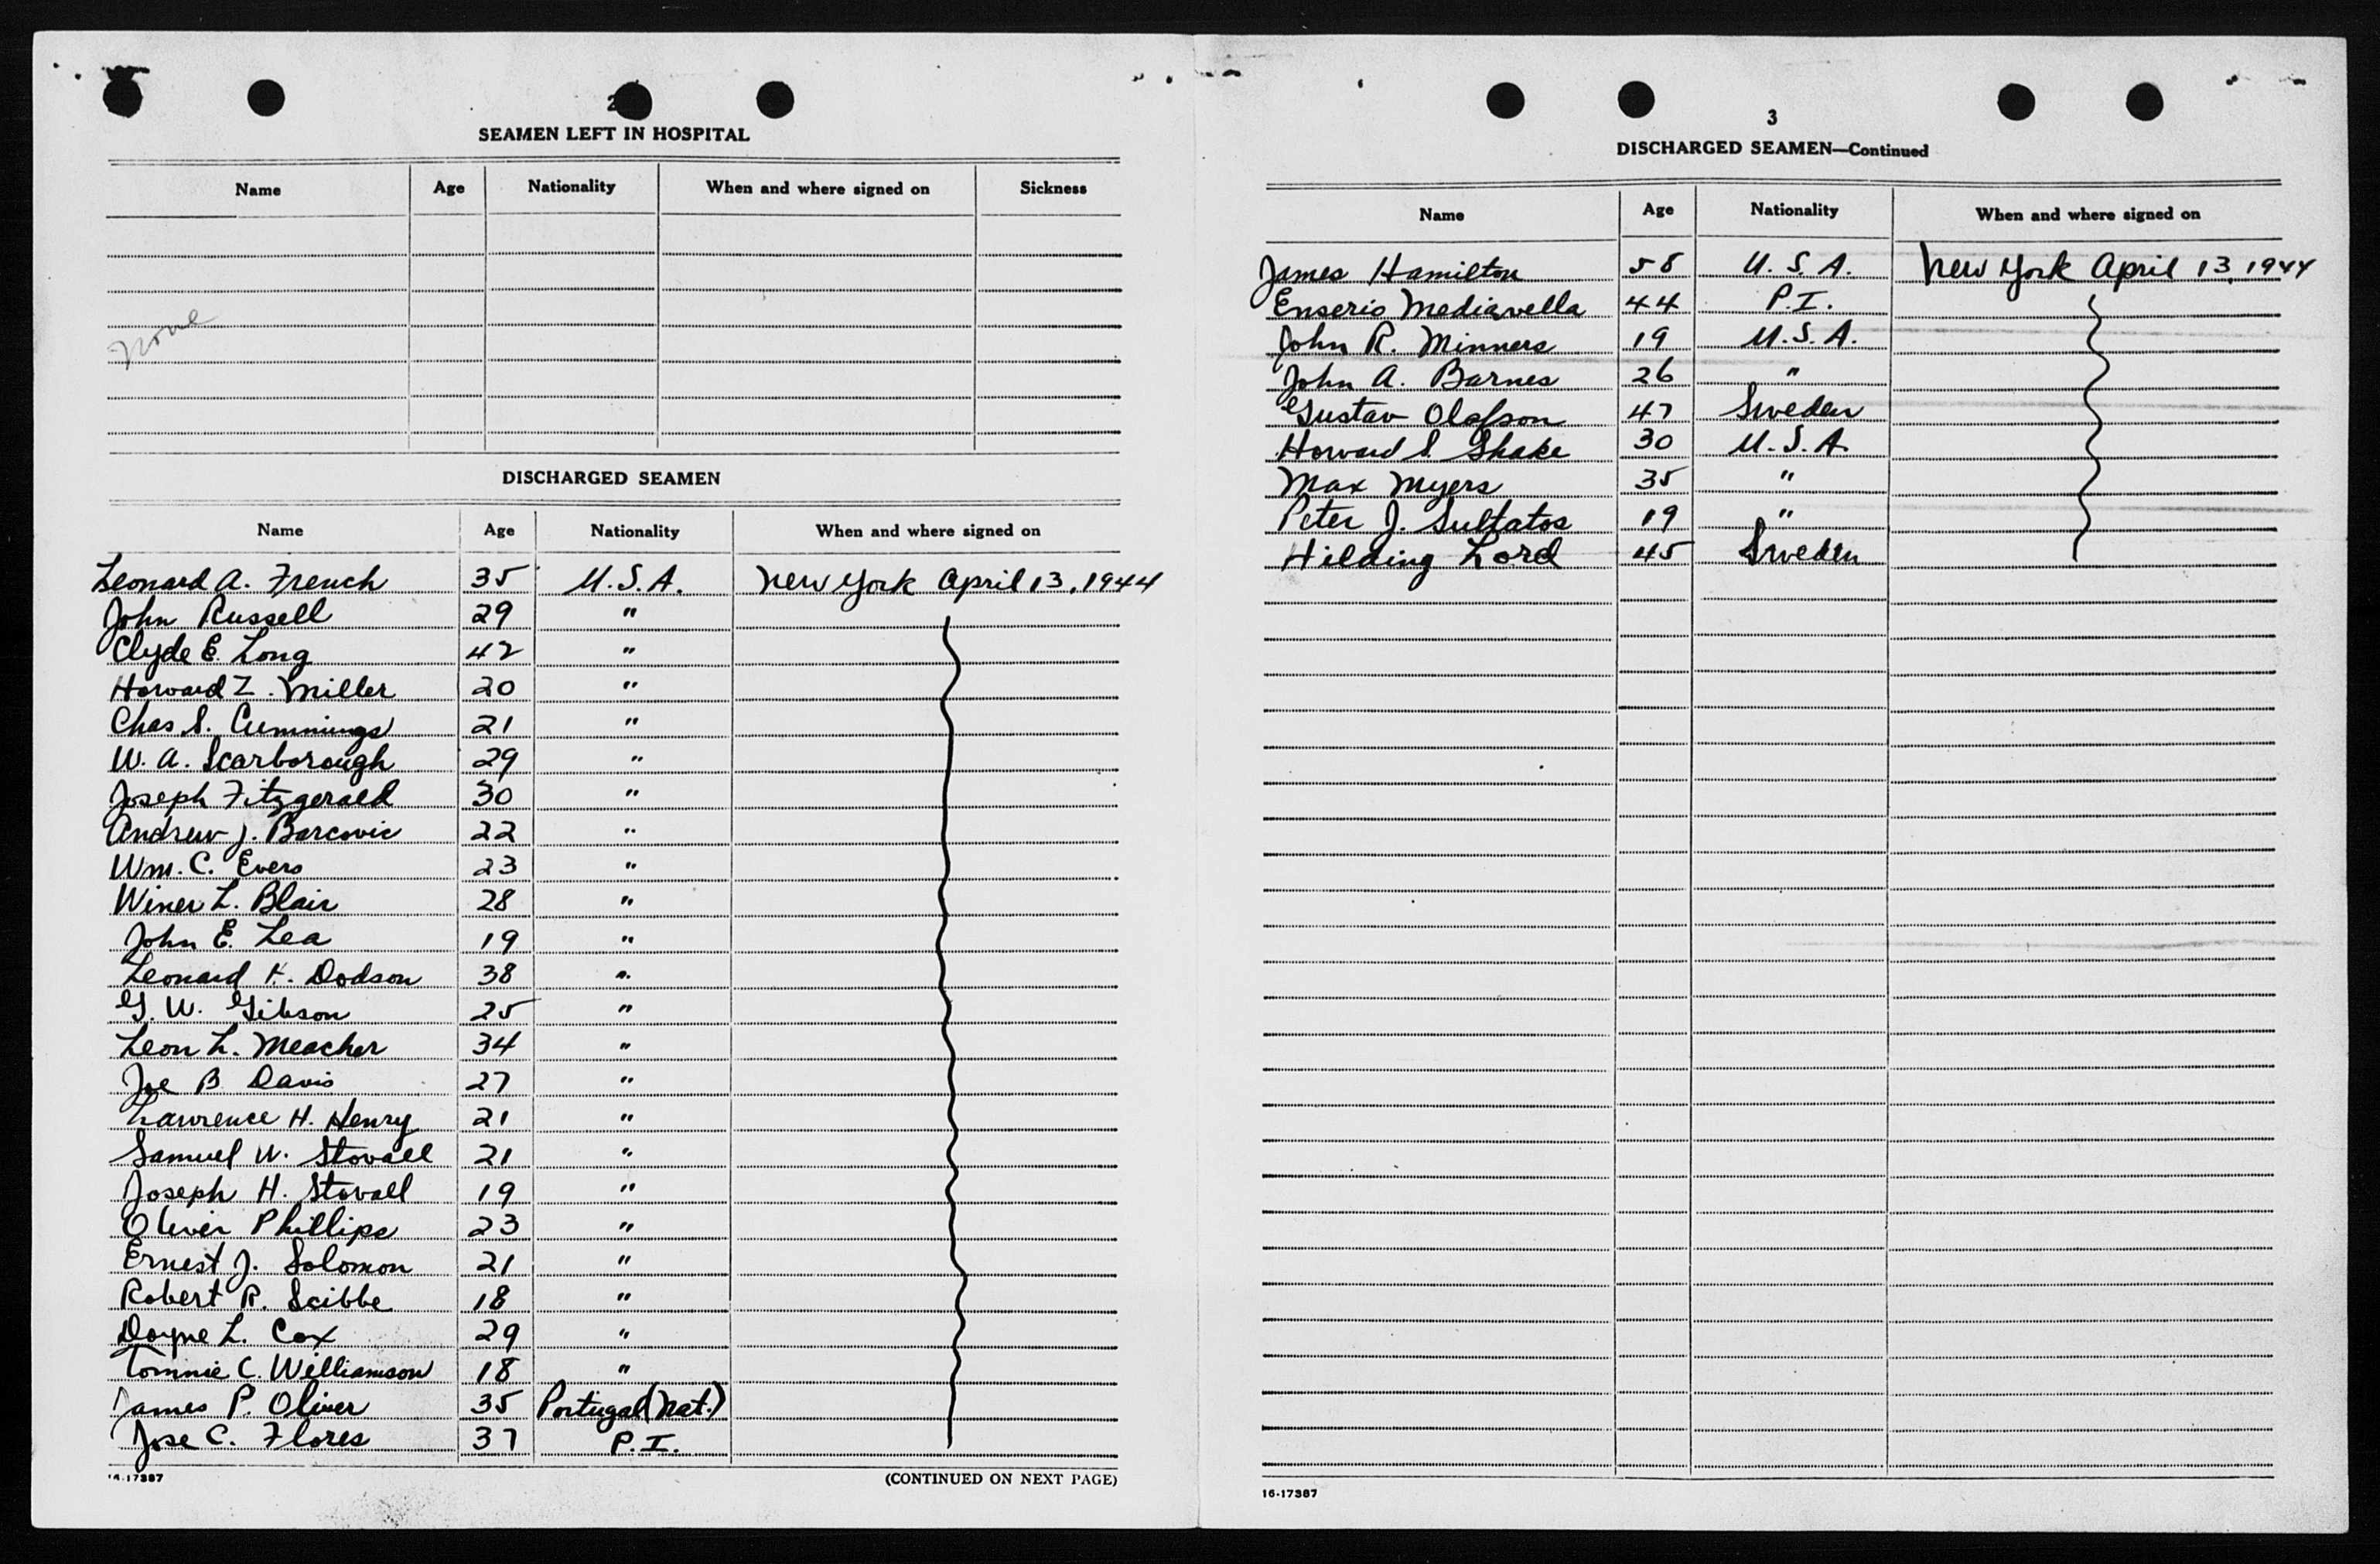 2
SEAMEN LEFT IN HOSPITAL
Name Age Nationality When and where signed on Sickness
None
DISCHARGED SEAMEN
Name Age Nationality When and where signed on
Leonard A. French 35 U.S.A. New York April 13, 1944
John Russell 29 "
Clyde E. Long 42 "
Howard Z. Miller 20 "
Chas S. Cummings 21 "
W. A. Scarborough 29 "
Joseph Fitzgerald 30 "
Andrew J. Barcovic 22 "
Wm. C. Evers 23 "
Winer L. Blair 28 "
John E. Lea 19 "
Leonard H. Dodson 38 "
G. W. Gibson 25 "
Leon L. Meacher 34 "
Joe B. Davis 27 "
Lawrence H. Henry 21 "
Samuel W. Stovall 21 "
Joseph H. Stovall 19 "
Oliver Phillips 23 "
Ernest J. Solomon 21 "
Robert R. Scibbe 18 "
Doyne L. Cox 29 "
Tommie C. Williamson 18 "
James P. Oliver 35 Portugal (Nat.)
Jose C. Flores 37 P.I.
16-17387 (CONTINUED ON NEXT PAGE)
3
DISCHARGED SEAMEN—Continued
Name Age Nationality When and where signed on
James Hamilton 58 U.S.A. New York April 13, 1944
Enserio Mediavella 44 P.I.
John R. Minners 19 U.S.A.
John A. Barnes 26 "
Gustav Olofson 47 Sweden
Howard S. Shake 30 U.S.A.
Max Myers 35 "
Peter J. Sultatos 19 "
Hilding Lord 45 Sweden
16-17387